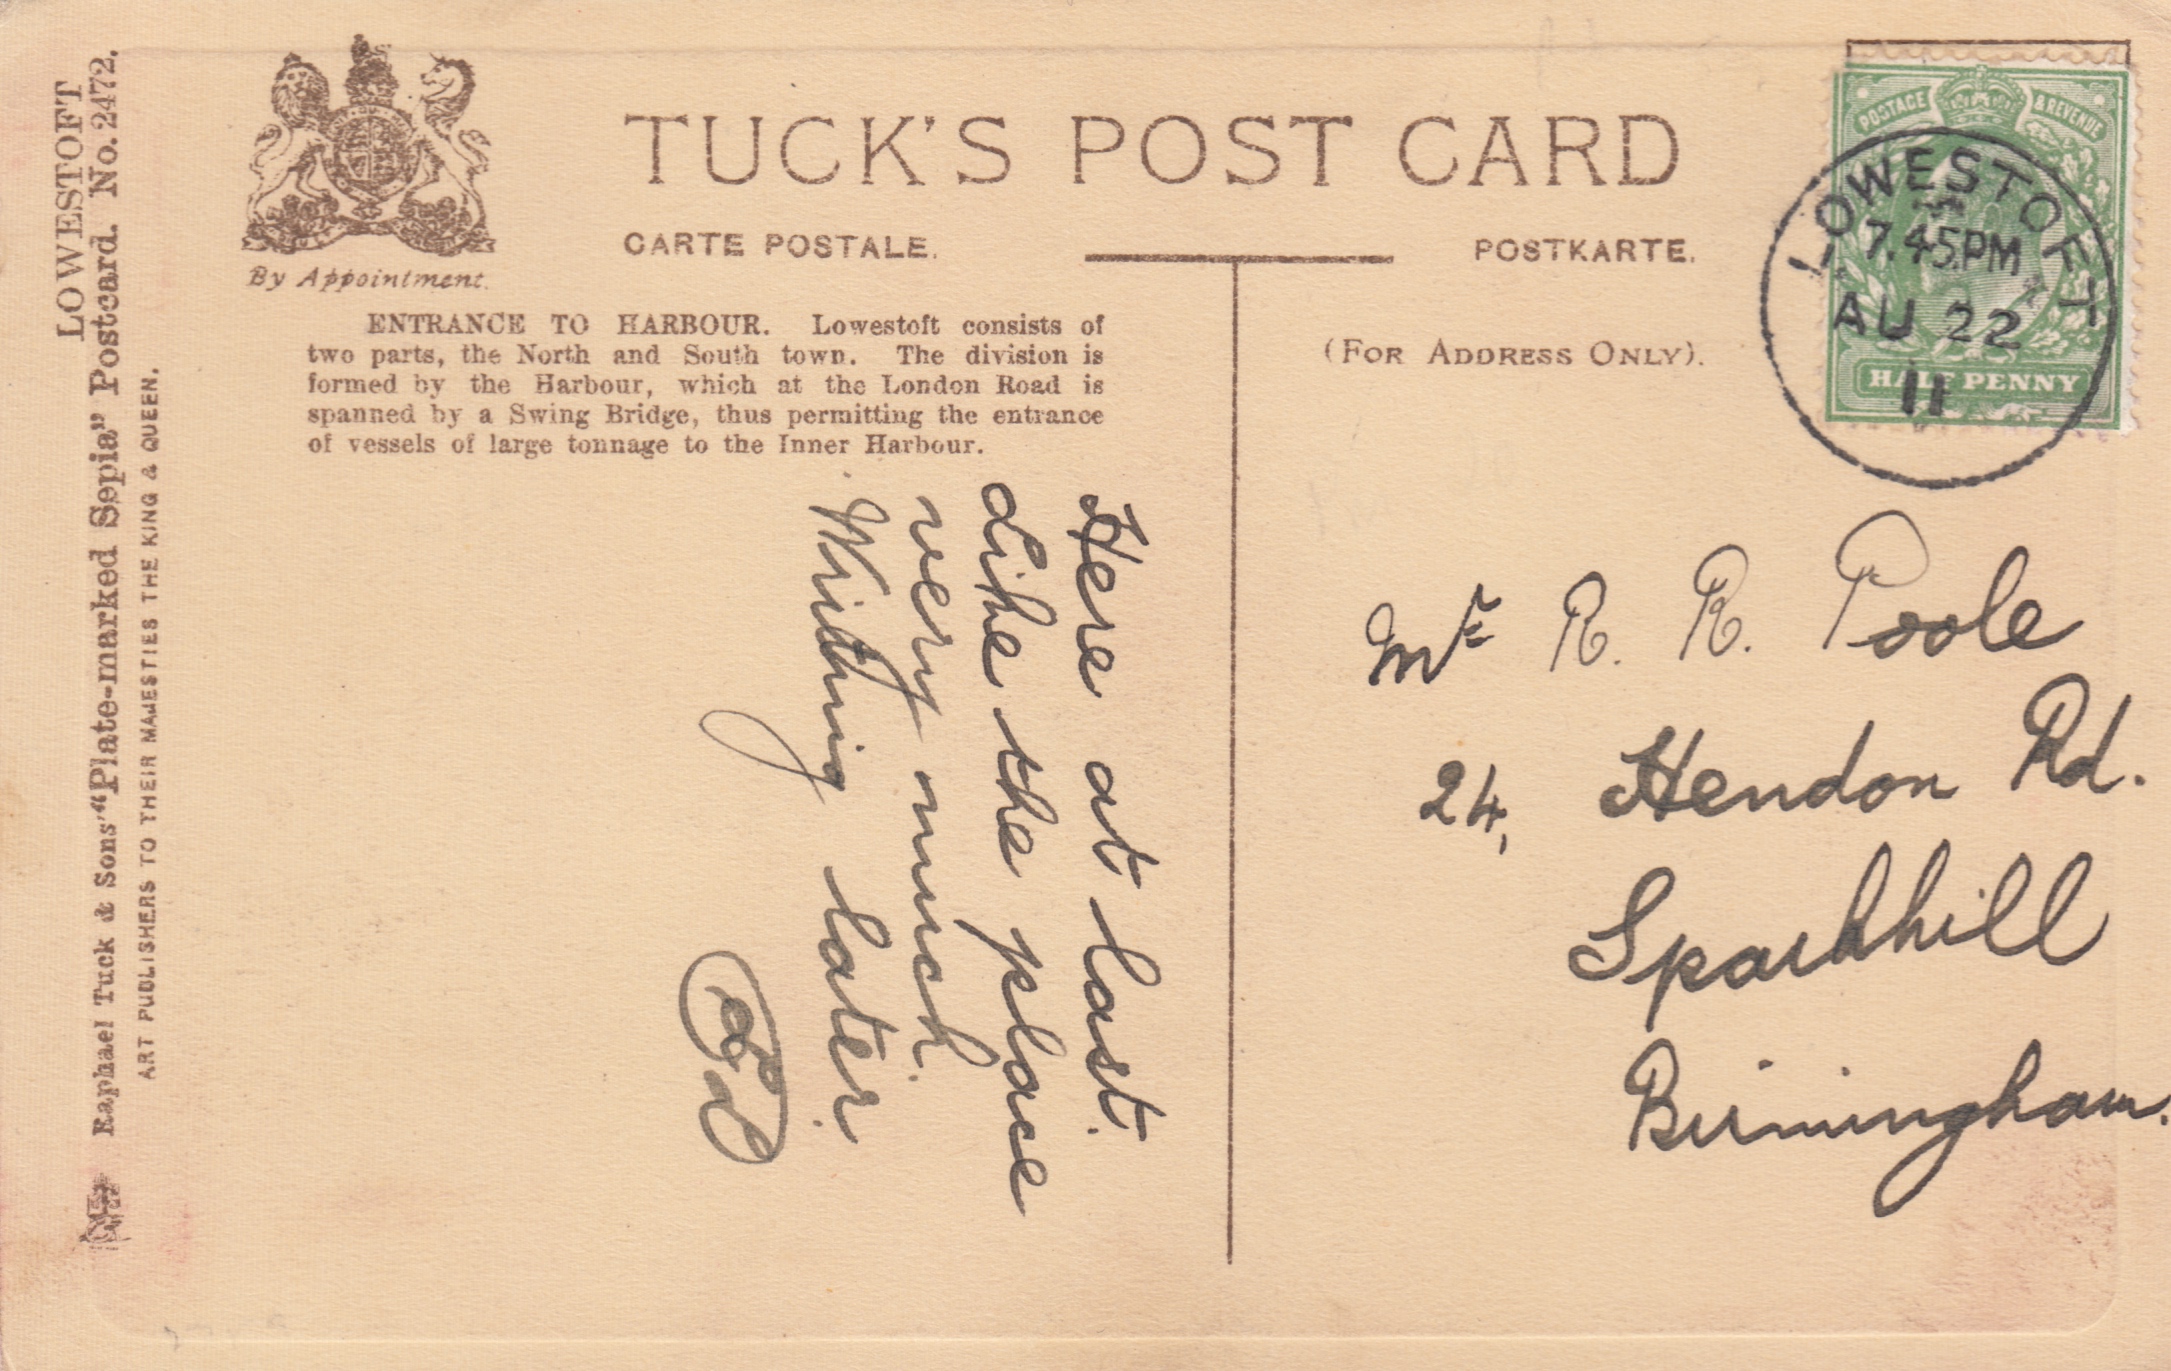 LOWESTOFT
Raphael Tuck & Sons' "Plate-marked Sepia" Postcard. No. 2472.
ART PUBLISHERS TO THEIR MAJESTIES THE KING & QUEEN.
By Appointment.
TUCK'S POST CARD
CARTE POSTALE.
POSTKARTE.
ENTRANCE TO HARBOUR. Lowestoft consists of
two parts, the North and South town. The division is
formed by the Harbour, which at the London Road is
spanned by a Swing Bridge, thus permitting the entrance
of vessels of large tonnage to the Inner Harbour.
Here at last.
Like the place
very much.
Writing later.
(FOR ADDRESS ONLY).
POSTAGE & REVENUE
HALF PENNY
LOWESTOFT
7.45PM
AU 22
11
Mr R. R. Poole
24, Hendon Rd.
Sparkhill
Birmingham.